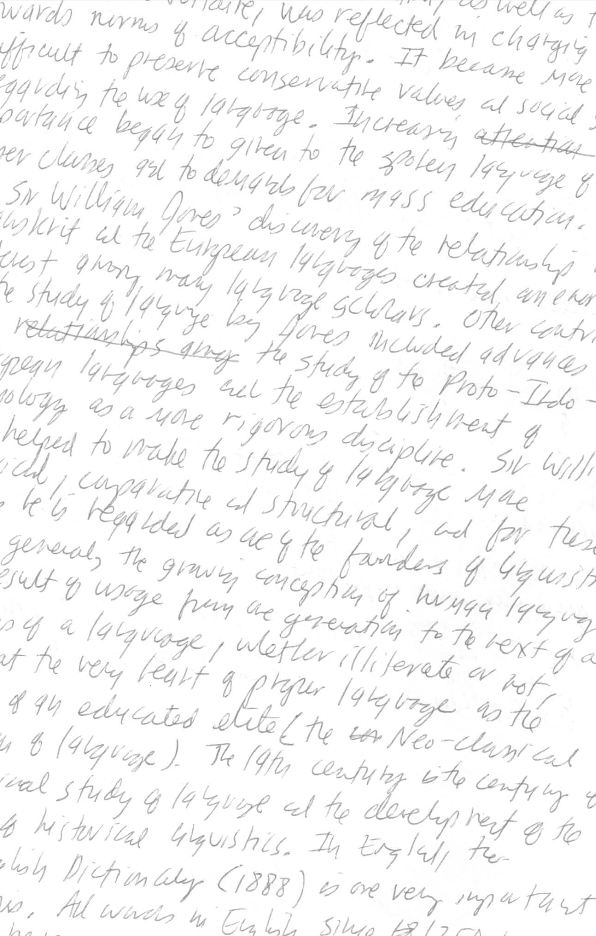 as well as
, was reflected in changing
wards norms of acceptibility. It became more
fficult to preserve conservative values al social s
egarding the use of language. Increasing attention
portance began to given to the spoken language of
er classes ad to demands for mass education.
Sir William Jones' discovery of the relationship
nskrit ad the European languages created an enor
erest among many language scholars. Other contri
he study of language by Jones included advances
relationships among the study of the Proto-Indo-
opean languages and the establishment of
nology as a more rigorous discipline. Sir Willi
helped to make the study of language more
ical, comparative ad structural, and for these
he is regarded as one of the founders of linguisti
general, the growing conception of human languag
esult of usage from one generation to the next of a
s of a language, whether illiterate or not,
at the very heart of proper language as the
of an educated elite (the Neo-classical
of language). The 19th century is the century of
ical study of language ad the development of the
of historical linguistics. In English, the
glish Dictionary (1888) is one very important
is. All words in English since